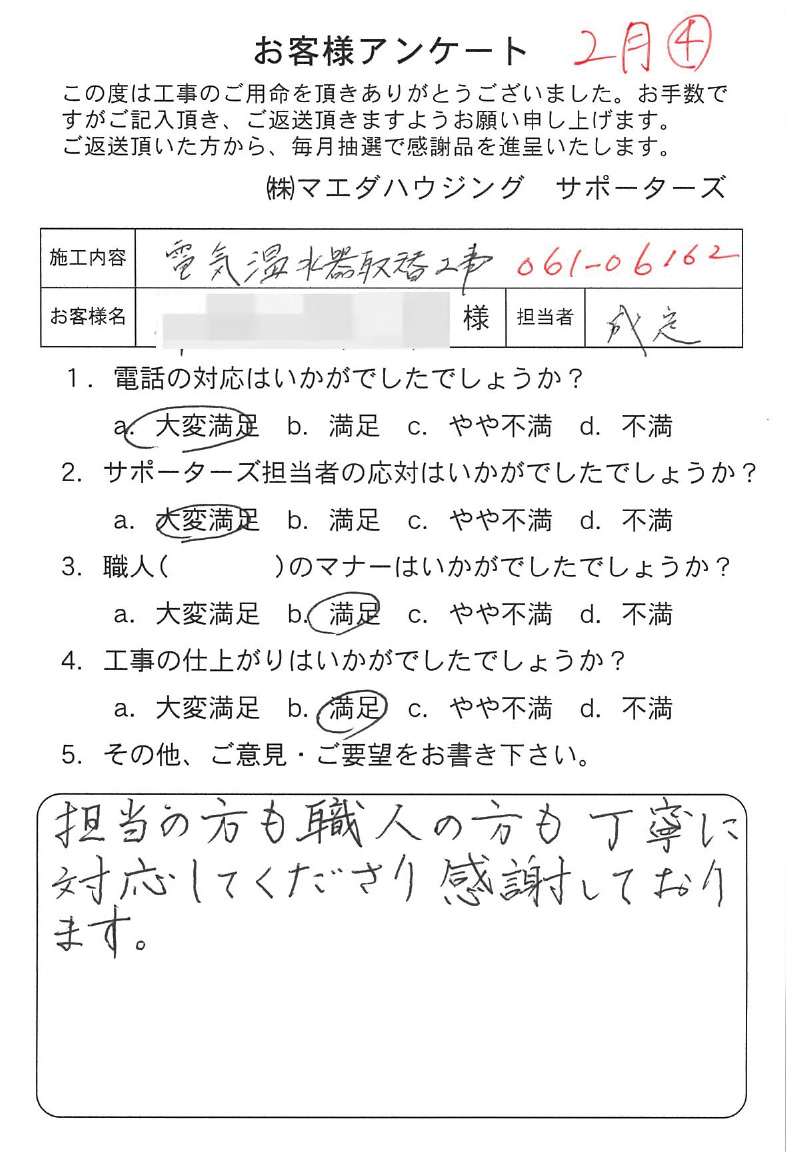 お客様アンケート 2月④
この度は工事のご用命を頂きありがとうございました。お手数で
すがご記入頂き、ご返送頂きますようお願い申し上げます。
ご返送頂いた方から、毎月抽選で感謝品を進呈いたします。
㈱マエダハウジング サポーターズ
施工内容 電気温水器取替工事 061-06162
お客様名 様 担当者 成定
1. 電話の対応はいかがでしたでしょうか？
a. 大変満足 b. 満足 c. やや不満 d. 不満
2. サポーターズ担当者の応対はいかがでしたでしょうか？
a. 大変満足 b. 満足 c. やや不満 d. 不満
3. 職人( )のマナーはいかがでしたでしょうか？
a. 大変満足 b. 満足 c. やや不満 d. 不満
4. 工事の仕上がりはいかがでしたでしょうか？
a. 大変満足 b. 満足 c. やや不満 d. 不満
5. その他、ご意見・ご要望をお書き下さい。
担当の方も職人の方も丁寧に
対応してくださり感謝しており
ます。